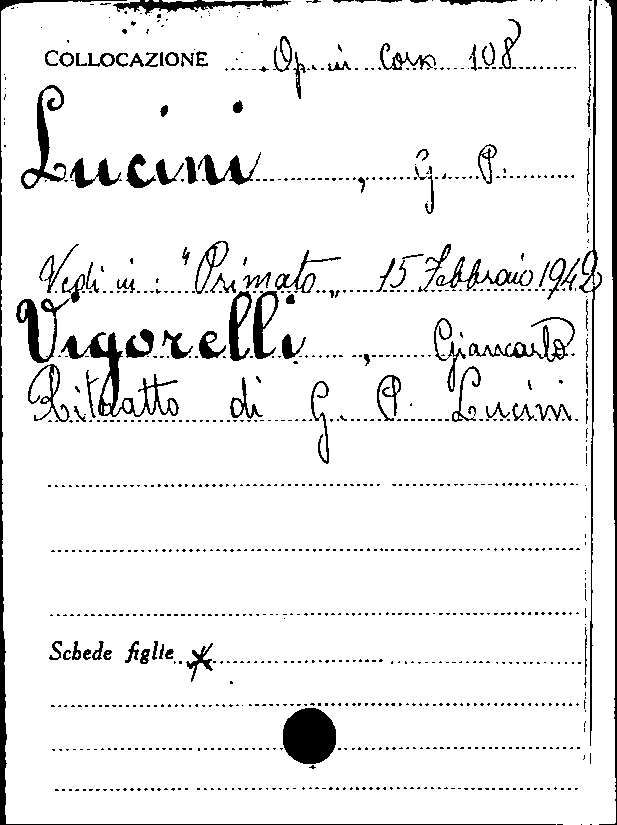 COLLOCAZIONE Op. in Corso 108
Lucini, G. P.
Vedi in: "Primato„ 15 Febbraio 1942
Vigorelli, Giancarlo
Ritratto di G. P. Lucini
Schede figlie